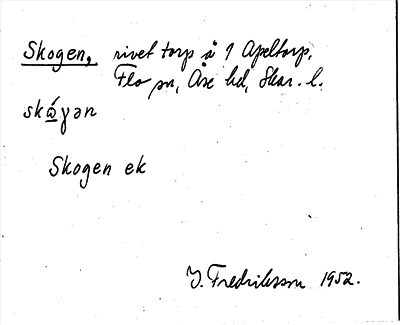 Skogen, rivet torp å 1 Apeltorp,
Flo sn, Åse hd, Skar. l.
skǻγən
Skogen ek
I. Fredriksson 1952.